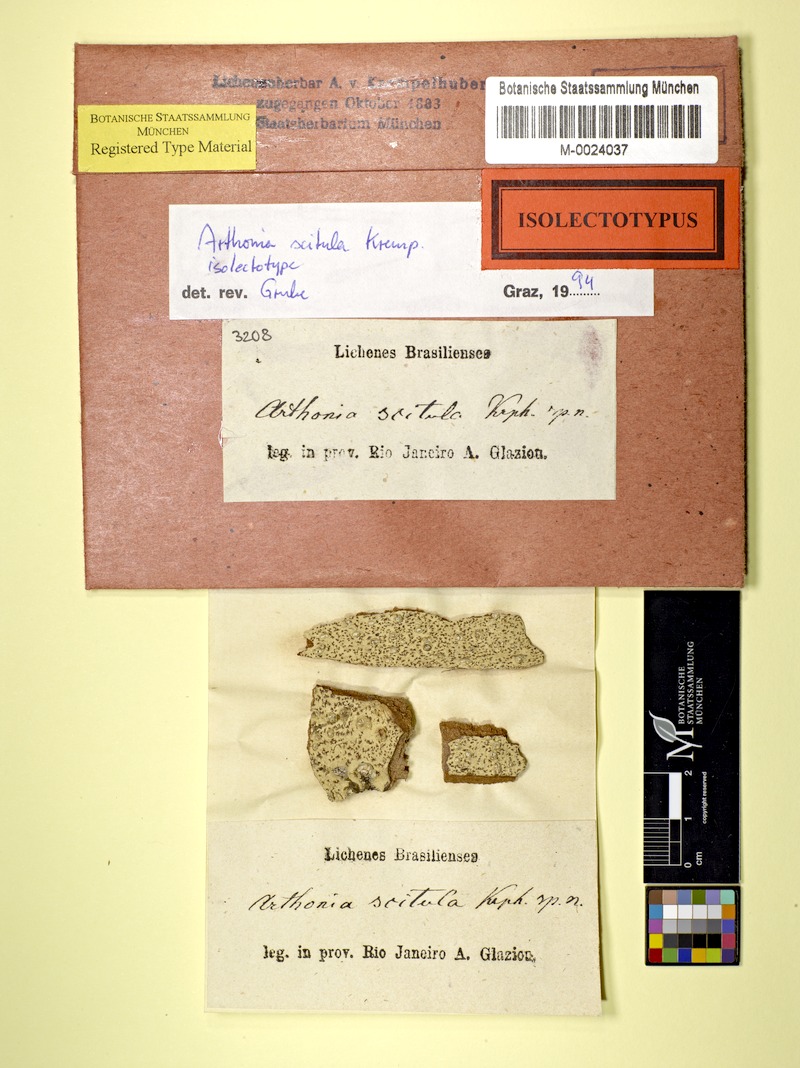 Lichenenherbar A. v. Krempelhuber
zugegangen Oktober 1883
Staatsherbarium München
Botanische Staatssammlung München
M-0024037
BOTANISCHE STAATSSAMMLUNG
MÜNCHEN
Registered Type Material
ISOLECTOTYPUS
Arthonia scitula Kremp.
isolectotype
det. rev. Grube
Graz, 1994
3208
Lichenes Brasilienses
Arthonia scitula Krph. sp. n.
leg. in prov. Rio Janeiro A. Glaziou.
BOTANISCHE
STAATSSAMMLUNG
MÜNCHEN
M
copyright reserved
0 1 2
cm
Lichenes Brasilienses
Arthonia scitula Krph. sp. n.
leg. in prov. Rio Janeiro A. Glaziou.